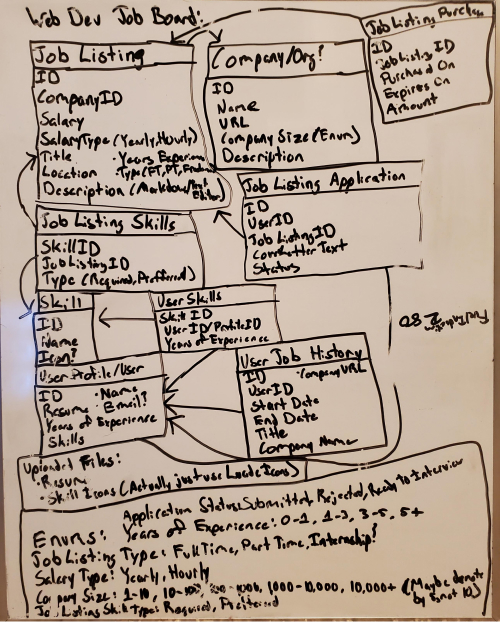 Web Dev Job Board:
Job Listing Purchase
ID
Job Listing ID
Purchased On
Expires On
Amount
Job Listing
ID
CompanyID
Salary
SalaryType (Yearly, Hourly)
Title · Years Experience
Location · Type (FT, PT,
Description (Markdown/
Company/Org?
ID
Name
URL
Company Size (Enum)
Description
Job Listing Application
ID
UserID
Job ListingID
CoverLetter Text
Status
Job Listing Skills
SkillID
JobListingID
Type (Required, Preferred)
Skill
ID
Name
Icon?
User Skills
Skill ID
User ID/ProfileID
Years of Experience
User Profile/User
ID · Name
Resume · Email?
Years of Experience
Skills
User Job History
ID · CompanyURL
UserID
Start Date
End Date
Title
Company Name
Uploaded Files:
· Resume
· Skill Icons (Actually just use Lucide Icons)
Enums:
Application Status: Submitted, Rejected, Ready To Interview
Years of Experience: 0-1, 1-3, 3-5, 5+
Job Listing Type: Full Time, Part Time, Internship?
Salary Type: Yearly, Hourly
Company Size: 1-10, 10-100, 100-1000, 1000-10,000, 10,000+ (Maybe denote by
Job Listing Skill Type: Required, Preferred